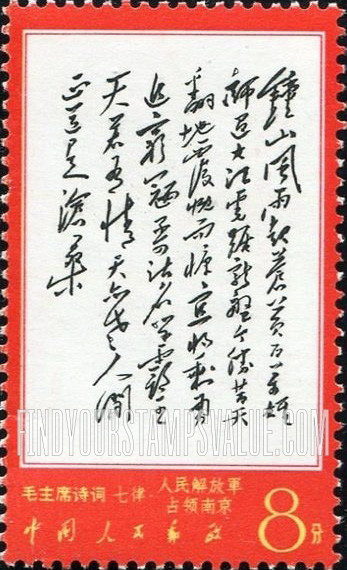 鐘山風雨起蒼黄百万雄
師過大江虎踞龍盤今勝昔天
翻地覆慨而慷宜將剩勇
追窮寇不可沽名学霸王
天若有情天亦老人間
正道是滄桑
FINDYOURSTAMPSVALUE.COM
毛主席诗词 七律·人民解放軍
占领南京
中国人民邮政 8分